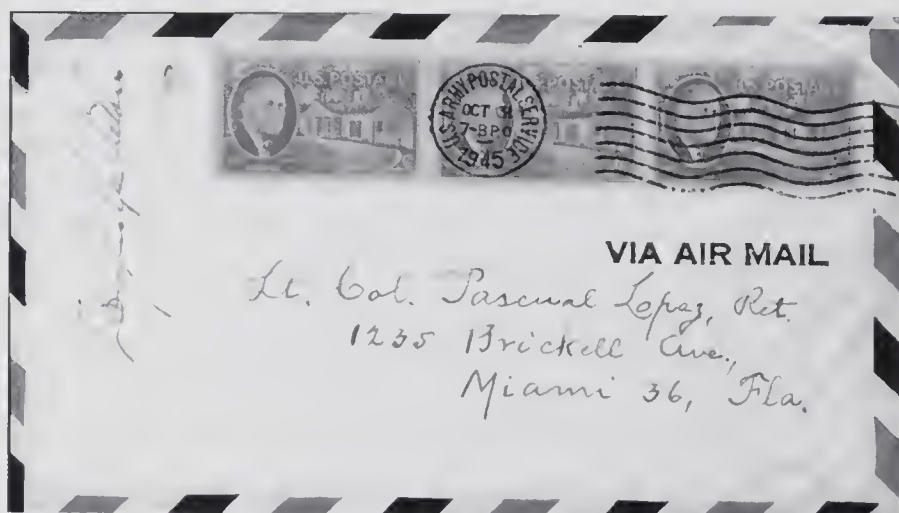 U.S. POSTAGE
U.S. ARMY POSTAL SERVICE
OCT 31
7-BPO
1945
VIA AIR MAIL
Lt. Col. Pascual Lopez, Ret.
1235 Brickell Ave.,
Miami 36, Fla.